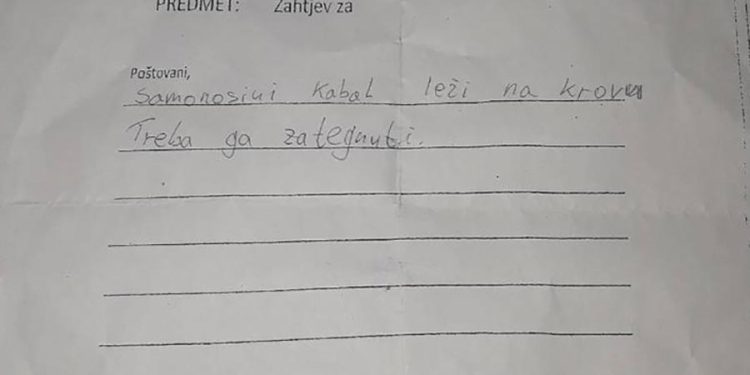 PREDMET: Zahtjev za
Poštovani,
Samonosivi kabal leži na krovu
Treba ga zategnuti.